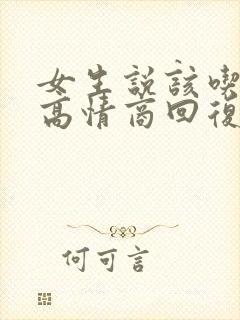 女生説該喫
高情商回復
何可言